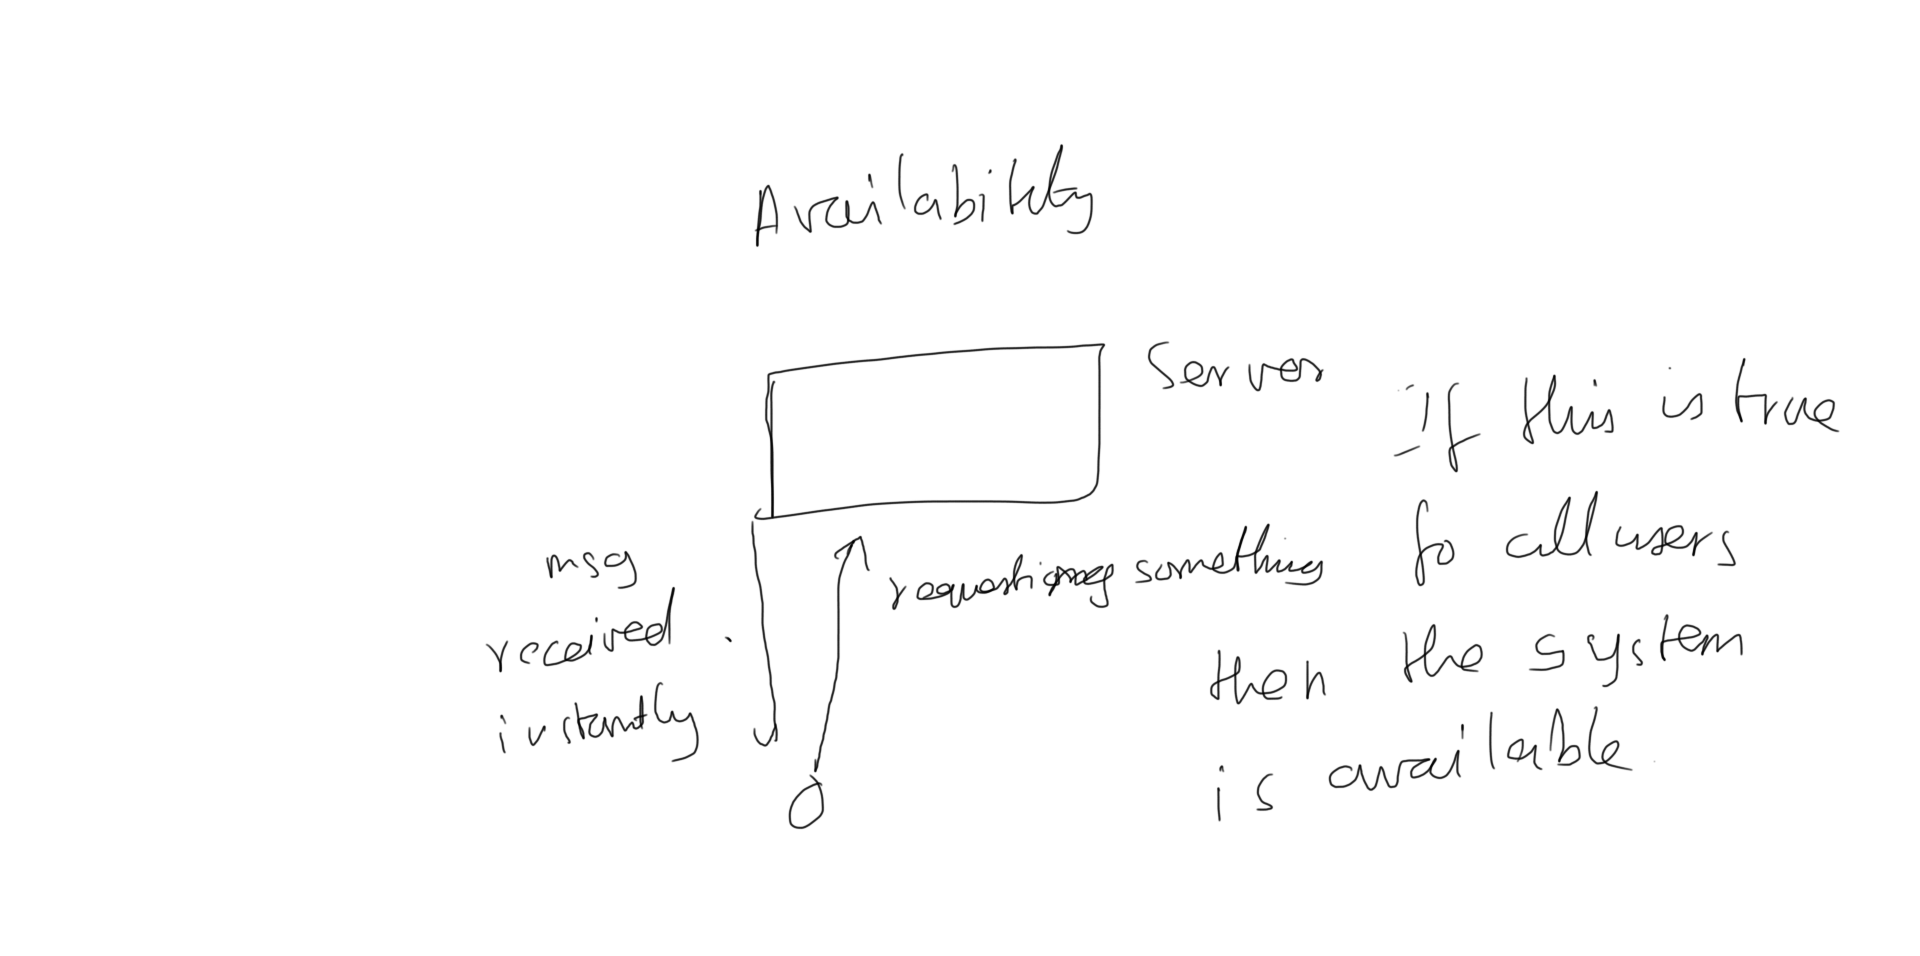 Availability
Server
msg
received
instantly
requesting something
If this is true
fo all users
then the system
is available